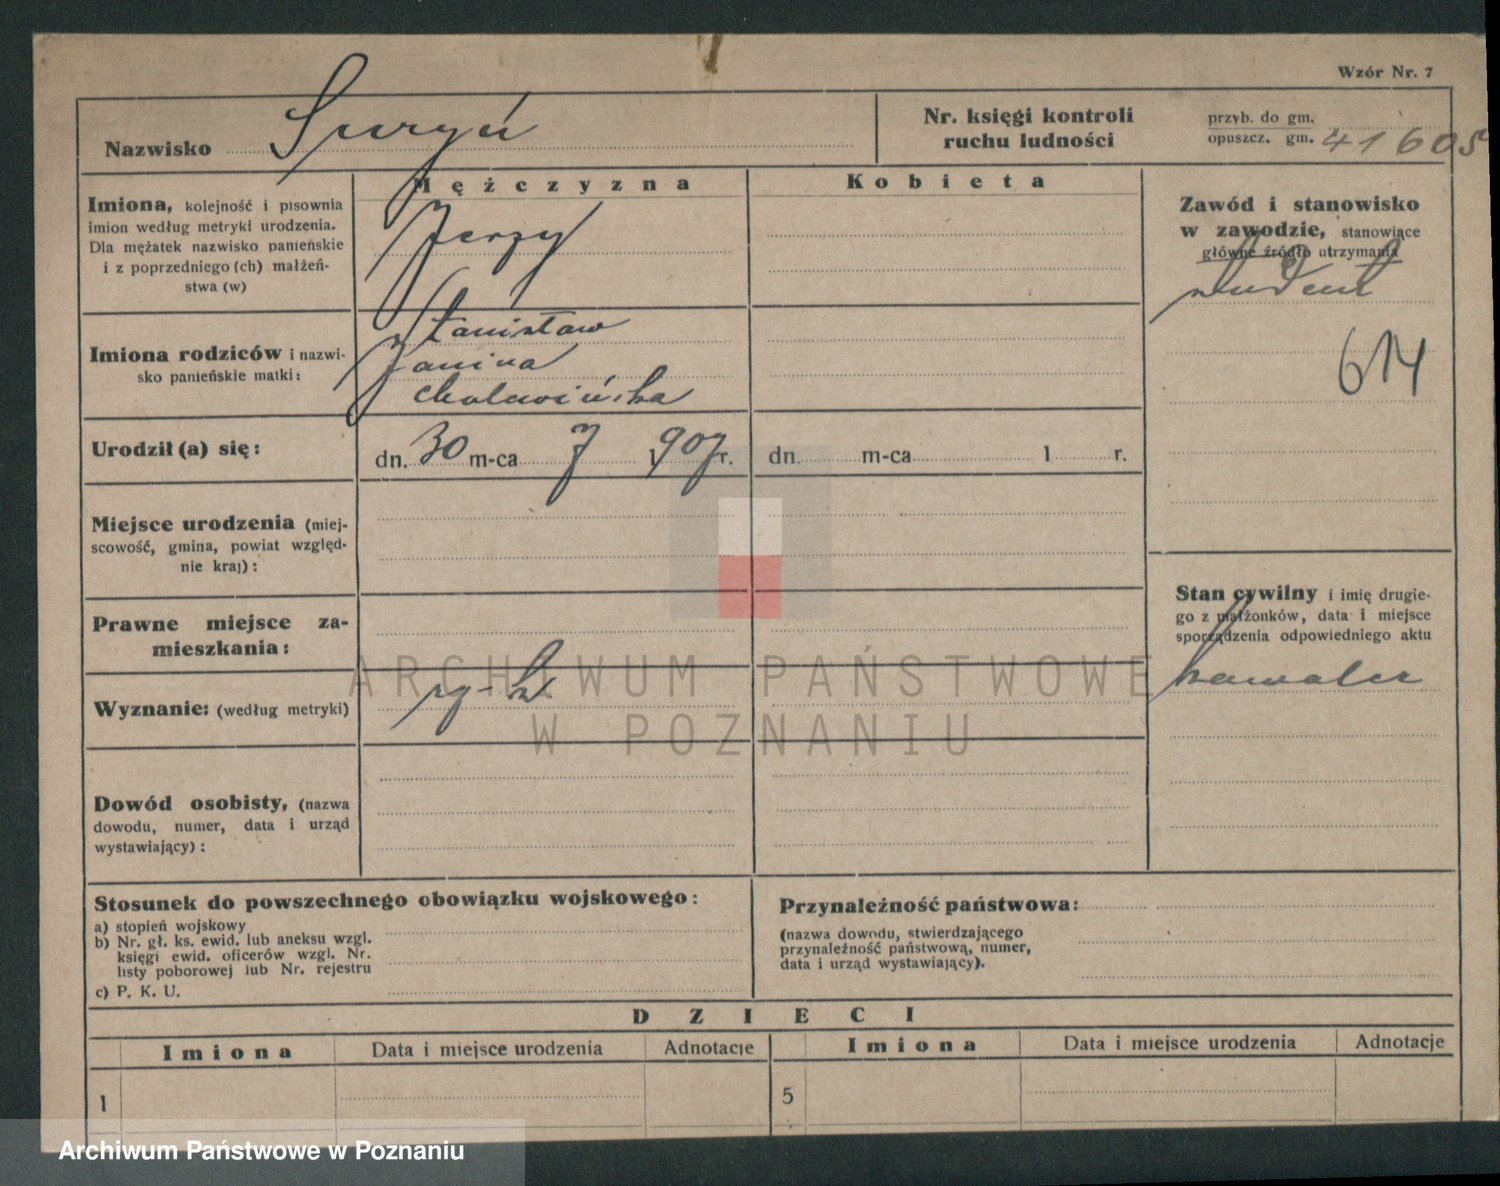 Wzór Nr. 7
Nazwisko Suryń
Nr. księgi kontroli
ruchu ludności
przyb. do gm.
opuszcz. gm. 41605
Mężczyzna
Kobieta
Imiona, kolejność i pisownia
imion według metryki urodzenia.
Dla mężatek nazwisko panieńskie
i z poprzedniego (ch) małżeń-
stwa (w)
Jerzy
Zawód i stanowisko
w zawodzie, stanowiące
główne źródło utrzymania
student
614
Imiona rodziców i nazwi-
sko panieńskie matki:
Stanisław
Janina
Urodził (a) się:
dn. 30 m-ca 7 1907 r.
dn. m-ca 1 r.
Miejsce urodzenia (miej-
scowość, gmina, powiat względ-
nie kraj) :
Stan cywilny i imię drugie-
go z małżonków, data i miejsce
sporządzenia odpowiedniego aktu
kawaler
Prawne miejsce za-
mieszkania:
Wyznanie: (według metryki)
Dowód osobisty, (nazwa
dowodu, numer, data i urząd
wystawiający) :
Stosunek do powszechnego obowiązku wojskowego:
a) stopień wojskowy
b) Nr. gł. ks. ewid. lub aneksu wzgl.
księgi ewid. oficerów wzgl. Nr.
listy poborowej lub Nr. rejestru
c) P. K. U.
Przynależność państwowa:
(nazwa dowodu, stwierdzającego
przynależność państwową, numer,
data i urząd wystawiający).
DZIECI
Imiona Data i miejsce urodzenia Adnotacje
Imiona Data i miejsce urodzenia Adnotacje
1
5
ARCHIWUM PAŃSTWOWE
W POZNANIU
Archiwum Państwowe w Poznaniu